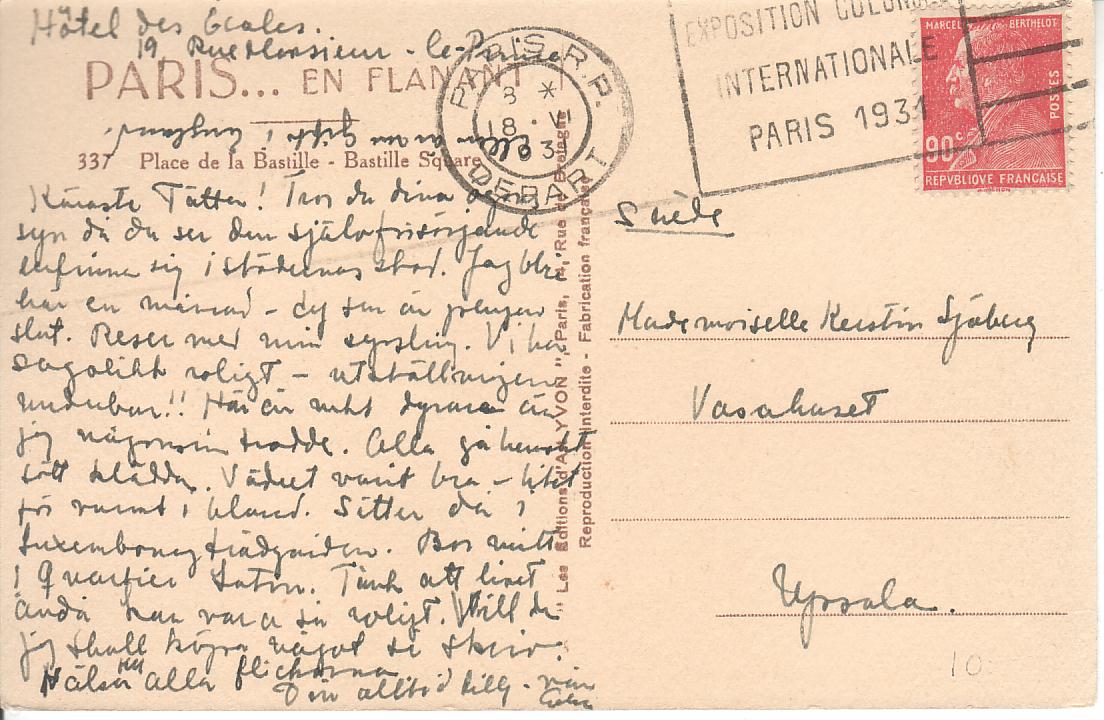 Hôtel des Ecoles.
19, Rue Monsieur - le-Prince
PARIS... EN FLANANT
337 Place de la Bastille - Bastille Square
Käraste Tätten! Tror du dina
syn då du ser den självförsörjande
infinna sig i städernas stad. Jag blir
här en månad - ty sen är pengar
slut. Reser med min syssling. Vi har
sagolikt roligt - utställningen
underbar!! Här är intet dyrare än
jag någonsin trodde. Alla gå hemskt
sött klädda. Vädret varit bra - litet
för varmt ibland. Sitter då i
Luxembourgträdgården. Bor mitt
i Quartier Latin. Tänk att livet
ändå kan vara så roligt. Vill du
jag skall köpa något så skriv.
Hälsa alla flickorna
Din alltid
PARIS R.P.
3 *
18 · VI
DEPART
EXPOSITION COLONI
INTERNATIONALE
PARIS 1931
MARCEL BERTHELOT
POSTES
90c
REPVBLIQVE FRANÇAISE
" Les Editions d'Art YVON ", Paris, 14, Rue de Bretagne
Reproduction interdite - Fabrication française
Suède
Mademoiselle Kerstin Sjöberg
Vasahuset
Uppsala.
10